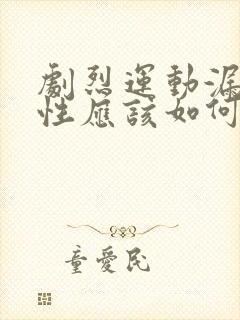 劇烈運動漏
性應該如何
童愛民